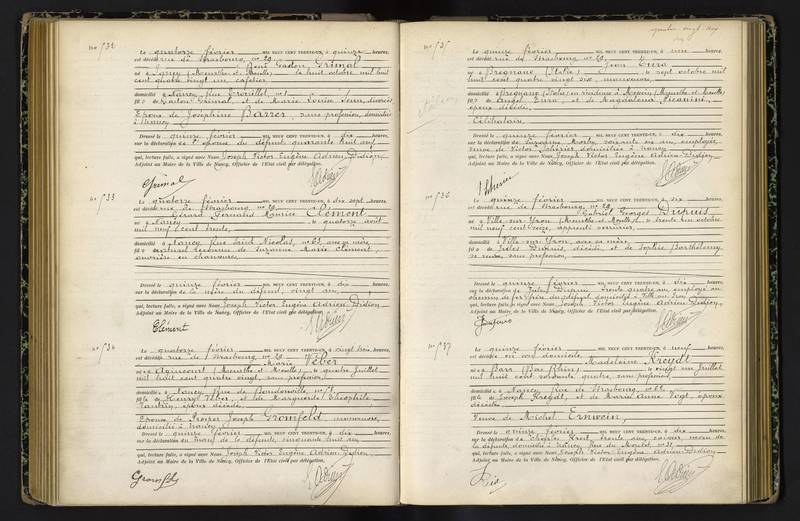 no 532
Le quatorze février MIL NEUF CENT TRENTE-UN, à quinze heures,
est décédé rue de Strasbourg, no 29
René Gaston Grimal
né à Nancy (Meurthe et Moselle), le huit octobre mil huit
cent quatre vingt un, cafetier
domicilié à Nancy, rue
fils de Gaston Grimal, et de Marie Louise
Epoux de Joséphine Barrer, sans profession, domiciliée
à Nancy
Dressé le quinze février MIL NEUF CENT TRENTE-UN, à dix heures,
sur la déclaration de l'épouse du défunt quarante huit ans,
qui, lecture faite, a signé avec Nous Joseph Victor Eugène Adrien Didion,
Adjoint au Maire de la Ville de Nancy, Officier de l'Etat civil par délégation.
Grimal
no 533
Le quatorze février MIL NEUF CENT TRENTE-UN, à dix sept heures,
est décédé rue de Strasbourg, no 29
Gérard Germain Maurice Clément
né à Nancy, le quatorze août
mil neuf cent trente,
domicilié à Nancy, rue Saint Nicolas, no 25, avec sa mère,
fils naturel reconnu de Suzanne Marie Clément,
ouvrière en chaussures,
Dressé le quinze février MIL NEUF CENT TRENTE-UN, à dix heures,
sur la déclaration de la mère du défunt, vingt ans,
qui, lecture faite, a signé avec Nous Joseph Victor Eugène Adrien Didion
Adjoint au Maire de la Ville de Nancy, Officier de l'Etat civil par délégation.
Clément
no 534
Le quatorze février MIL NEUF CENT TRENTE-UN, à vingt trois heures,
est décédée rue de Strasbourg no 29
Marie Véber
née à Agincourt (Meurthe et Moselle), le quatre juillet
mil huit cent quatre vingt, sans profession,
domiciliée à Nancy, rue de Boudonville, no
fille de Henry Véber, et de Marguerite Théophile
époux décédés
Epouse de Prosper Joseph Gromfeld, manoeuvre,
domicilié à Nancy
Dressé le quinze février MIL NEUF CENT TRENTE-UN, à dix heures,
sur la déclaration de la défunte, cinquante huit ans
qui, lecture faite, a signé avec Nous Joseph Victor Eugène Adrien Didion
Adjoint au Maire de la Ville de Nancy, Officier de l'Etat civil par délégation.
Gromfeld
no 535
Le quinze février MIL NEUF CENT TRENTE-UN, à une heures,
est décédé rue de Strasbourg no 29,
né à Bregnano (Italie), le sept octobre mil
huit cent quatre vingt six, manoeuvre,
domicilié à Bregnano (Italie) en résidence à (Meurthe et Moselle)
fils de Angel et de Magdalena
époux décédés
Célibataire
Dressé le quinze février MIL NEUF CENT TRENTE-UN, à dix heures,
sur la déclaration de Suzanne soixante un ans, employée,
domiciliée à Nancy
qui, lecture faite, a signé avec Nous Joseph Victor Eugène Adrien Didion
Adjoint au Maire de la Ville de Nancy, Officier de l'Etat civil par délégation.
no 536
Le quinze février MIL NEUF CENT TRENTE-UN, à six heures,
est décédé rue de Strasbourg, no 29
Gabriel Georges Dupuis
né à Ville-sur-Yron (Meurthe et Moselle), le trente un octobre
mil neuf cent treize, apprenti serrurier,
domicilié à Ville-sur-Yron, avec sa mère,
fils de Jules Dupuis, décédé, et de Sophie Barthélemy
sa veuve, sans profession,
Dressé le quinze février MIL NEUF CENT TRENTE-UN, à dix heures,
sur la déclaration de Julien Dupuis, trente quatre ans, employé au
chemin de fer, frère du défunt, domicilié à Ville sur Yron
qui, lecture faite, a signé avec Nous Joseph Victor Eugène Adrien Didion,
Adjoint au Maire de la Ville de Nancy, Officier de l'Etat civil par délégation.
Dupuis
no 537
Le quinze février MIL NEUF CENT TRENTE-UN, à neuf heures,
est décédée en son domicile
Madeleine Kreydt
née à Barr (Bas Rhin), le vingt un juillet
mil huit cent soixante quatre, sans profession,
domiciliée à Nancy, rue de Strasbourg, no
fille de Joseph Kreydt, et de Marie Anne Vogt époux
décédés
Veuve de Michel Ernwein
Dressé le quinze février MIL NEUF CENT TRENTE-UN, à dix heures,
sur la déclaration de trente ans,
la défunte, domicilié à Nancy, rue
qui, lecture faite, a signé avec Nous Joseph Victor Eugène Adrien Didion
Adjoint au Maire de la Ville de Nancy, Officier de l'Etat civil par délégation.